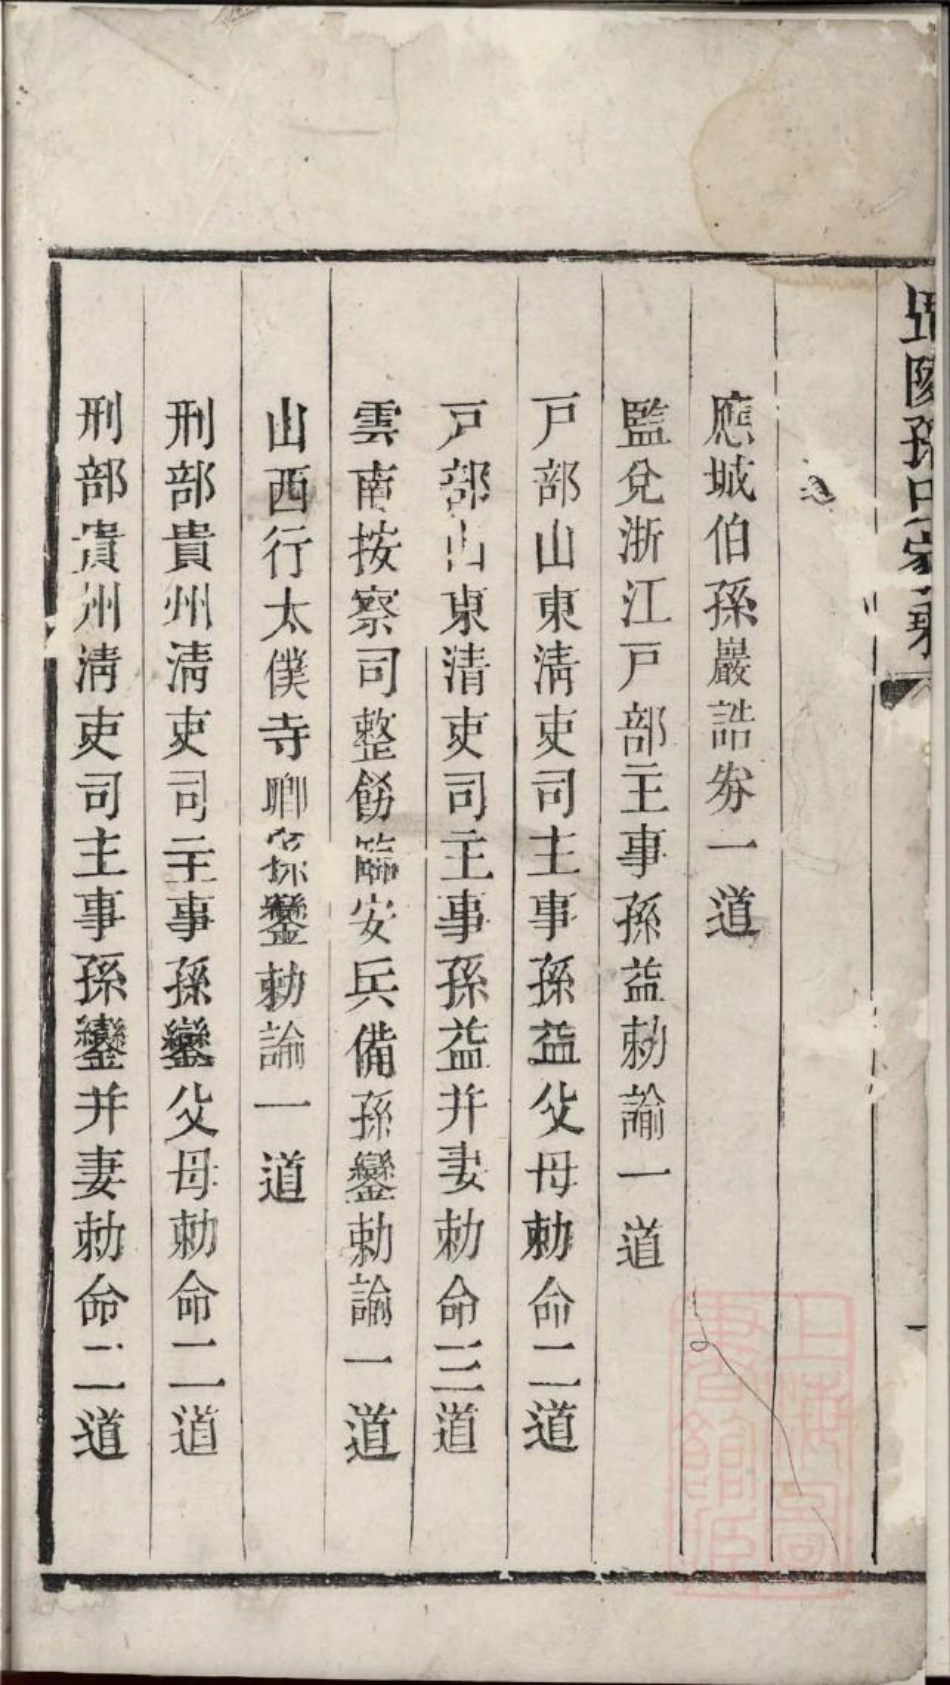 毘陵孫氏家乘
應城伯孫巖誥券一道
監兌浙江戸部主事孫益勅諭一道
戸部山東清吏司主事孫益父母勅命二道
戸部山東清吏司主事孫益并妻勅命三道
雲南按察司整飭臨安兵備孫鑾勅諭一道
山西行太僕寺卿孫鑾勅諭一道
刑部貴州清吏司主事孫鑾父母勅命二道
刑部貴州清吏司主事孫鑾并妻勅命二道
一
上海圖
書館藏